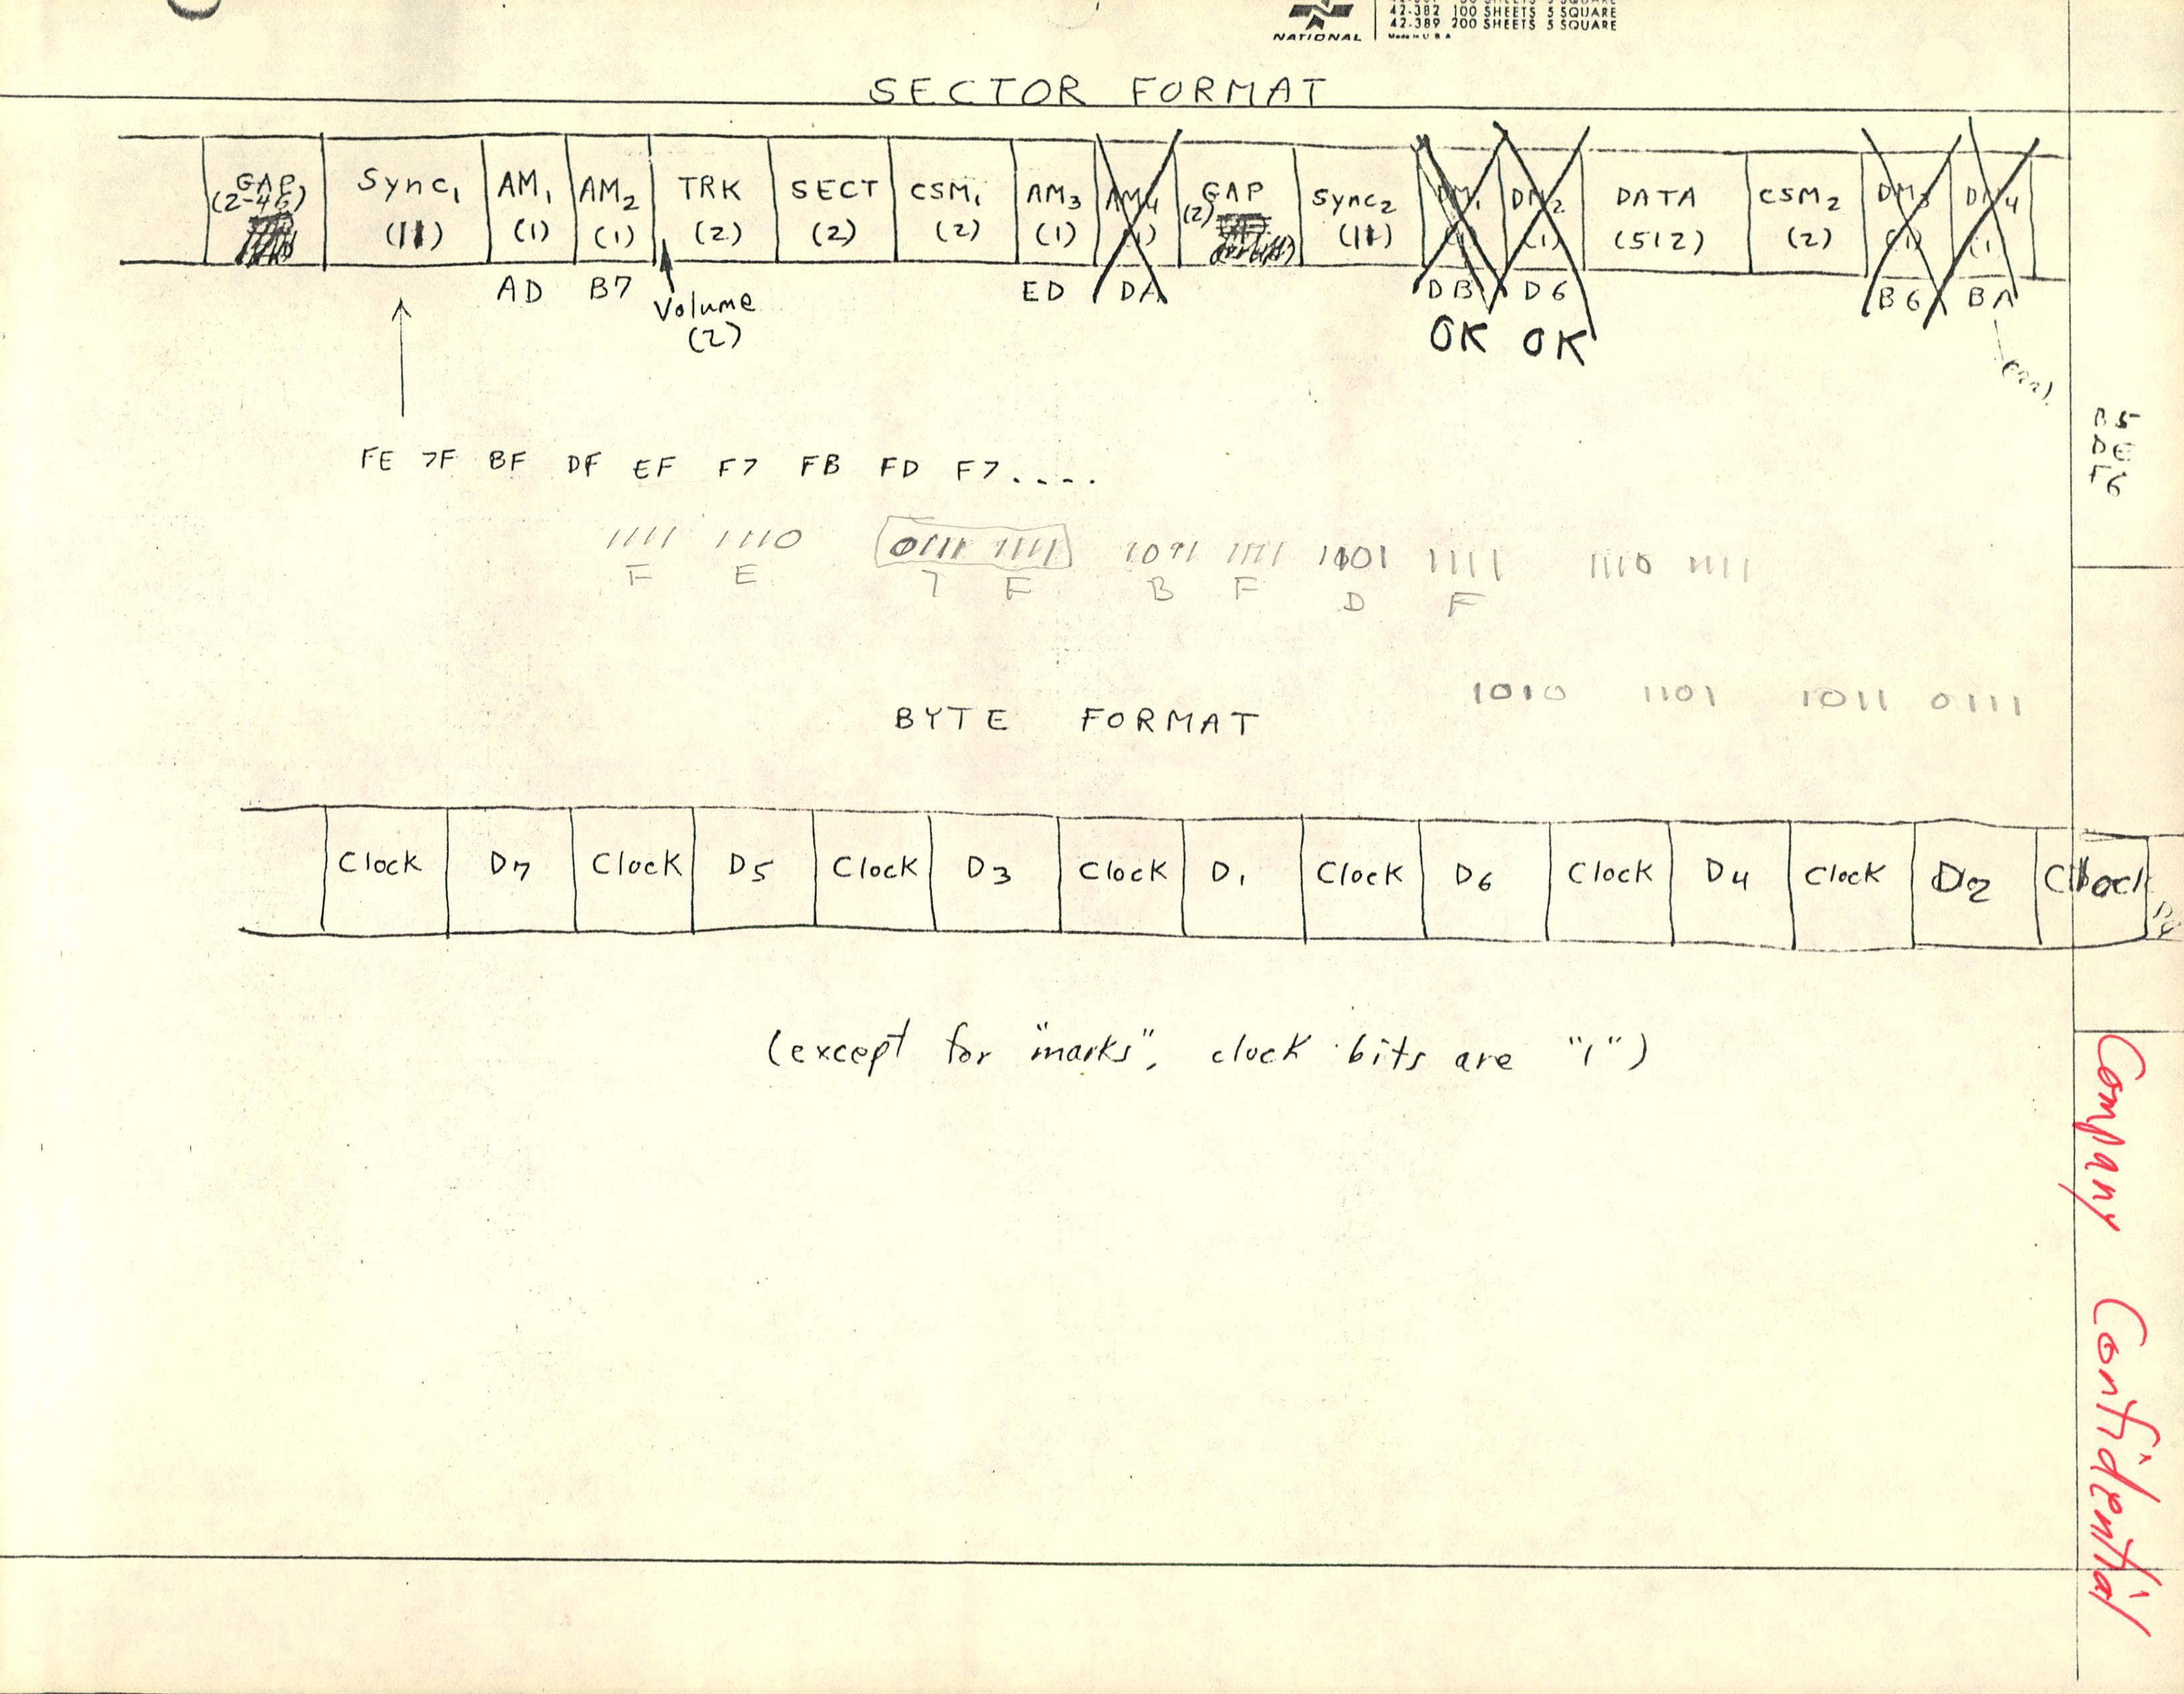 NATIONAL
42-382 100 SHEETS 5 SQUARE
42-389 200 SHEETS 5 SQUARE
Made in U S A
SECTOR FORMAT
GAP (2-46) Sync1 (11) AM1 (1) AM2 (1) TRK (2) SECT (2) CSM1 (2) AM3 (1) AM4 (1) GAP (2) Sync2 (11) DM1 (1) DM2 (1) DATA (512) CSM2 (2) DM3 (1) DM4 (1)
AD B7 ED DA DB D6 B6 BA
Volume
(2)
OK OK
FE 7F BF DF EF F7 FB FD F7....
1111 1110 0111 1111 1011 1111 1101 1111 1110 1111
F E 7 F B F D F
1010 1101 1011 0111
BYTE FORMAT
Clock D7 Clock D5 Clock D3 Clock D1 Clock D6 Clock D4 Clock D2 Clock
(except for "marks", clock bits are "1")
Company Confidential